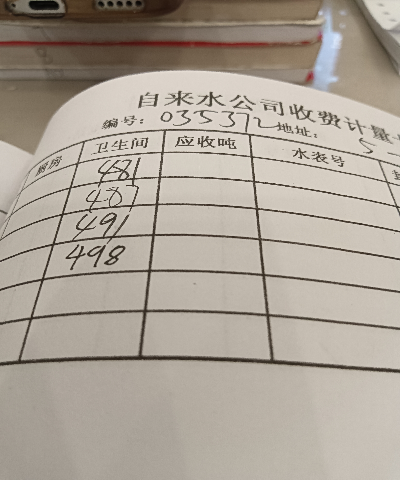 自来水公司收费计量
编号：035372 地址：5
厨房 卫生间 应收吨 水表号
481
487
491
498